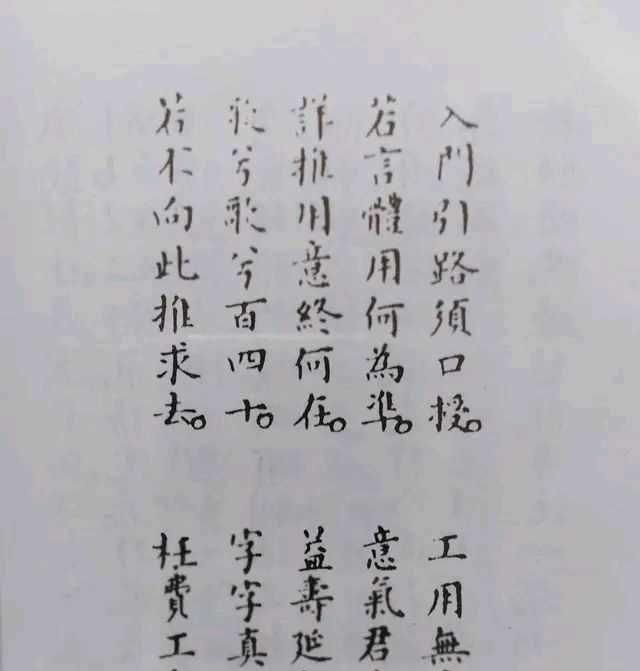 入門引路須口授。 工用無
若言體用何為準。 意氣君
詳推用意終何在。 益壽延
歌兮歌兮百四十。 字字真
若不向此推求去。 枉費工